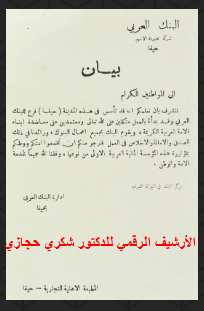 البنك العربي
شركة محدودة الاسهم
حيفا
بيان
الى المواطنين الكرام
نتشرف بان نعلمكم انه قد تأسس في هذه المدينة (حيفا) فرع للبنك
العربي وقد بدأنا بالعمل متكلين على الله تعالى ومعتمدين على معاضدة ابناء
الامة العربية الكريمة، ويقوم البنك بجميع اعمال البنوك، ورائدنا في ذلك
الصدق والامانة والاخلاص في العمل فنرجو منكم ان
بمؤازرة هذه المؤسسة المالية العربية الاولى من نوعها، وفقنا الله جميعا لخدمة
الامة والوطن.
ادارة البنك العربي
بحيفا
مركز البنك في البوابة الشرقية
الأرشيف الرقمي للدكتور شكري حجازي
المطبعة الاهلية التجارية - حيفا